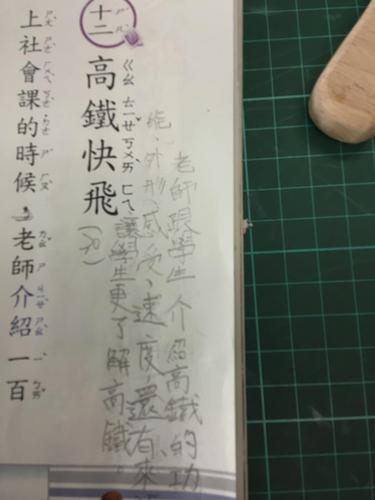 十二
高鐵快飛
老師跟學生介紹高鐵的功
能、外形、感受、速度，還有來
讓學生更了解高鐵。
上社會課的時候，老師介紹一百